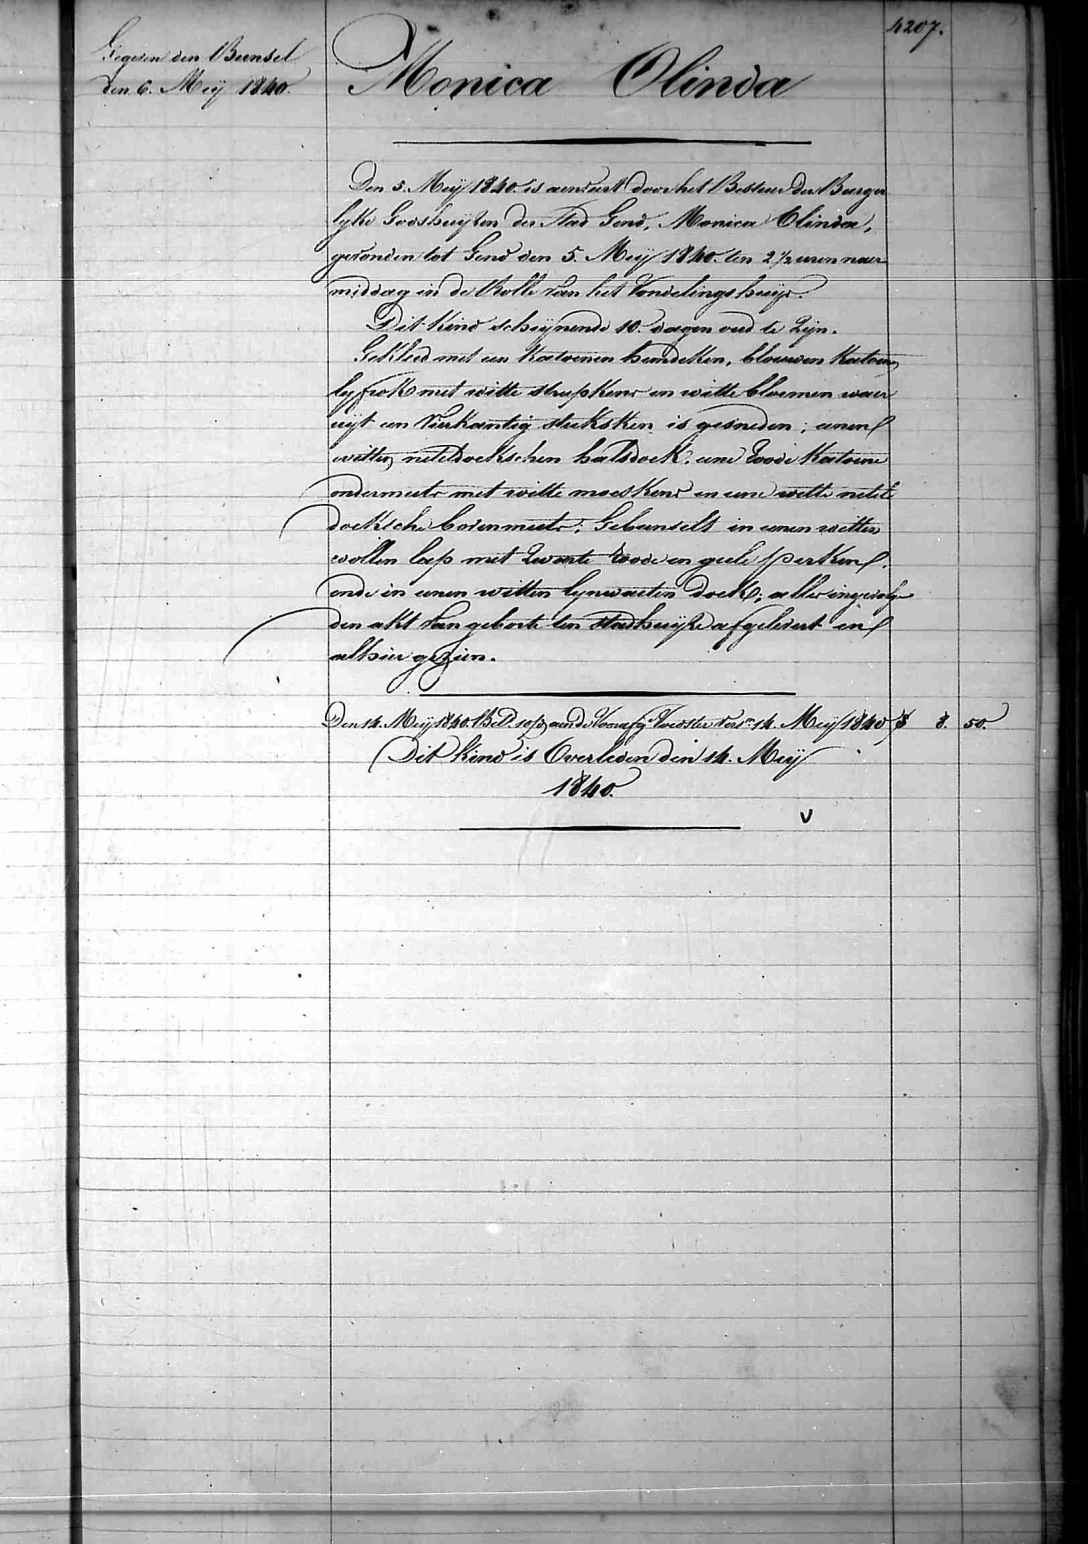 4207.
Gegeven den Bunsel
den 6. Meij 1840.
Monica Olinda
Den 5. Meij 1840. is aenveert door het Bestuer der Burger
lyke Godshuijsen der Stad Gend, Monica Olinda,
gevonden tot Gend den 5. Meij 1840. ten 2 1/2 uren naer
middag in de Rolle van het Vondelingshuijs.
Dit Kind schijnende 10. dagen oud te Zijn.
Gekleed met een Katoenen hemdeken, blauwen Katoen
lyfrok met witte streepkens en witte bloemen waer
uijt een vierkantig stuksken is gesneden; eenen
witten neteldoekschen halsdoek. eene Roode Katoene
ondermuts met witte moeskens en eene witte netel
doeksche bovenmuts; Gebunselt in eenen witten
wollen lap met Zwarte Roode en geele sperken,
ende in eenen witten lynwaeten doek; alles ingevolge
den akt van geboorte ten Stadhuijse afgelevert en
alhier gezien.
Den 14. Meij 1840. aen de Voedster 14. Meij 1840 8. 50.
Dit Kind is Overleden den 14. Meij
1840.
V